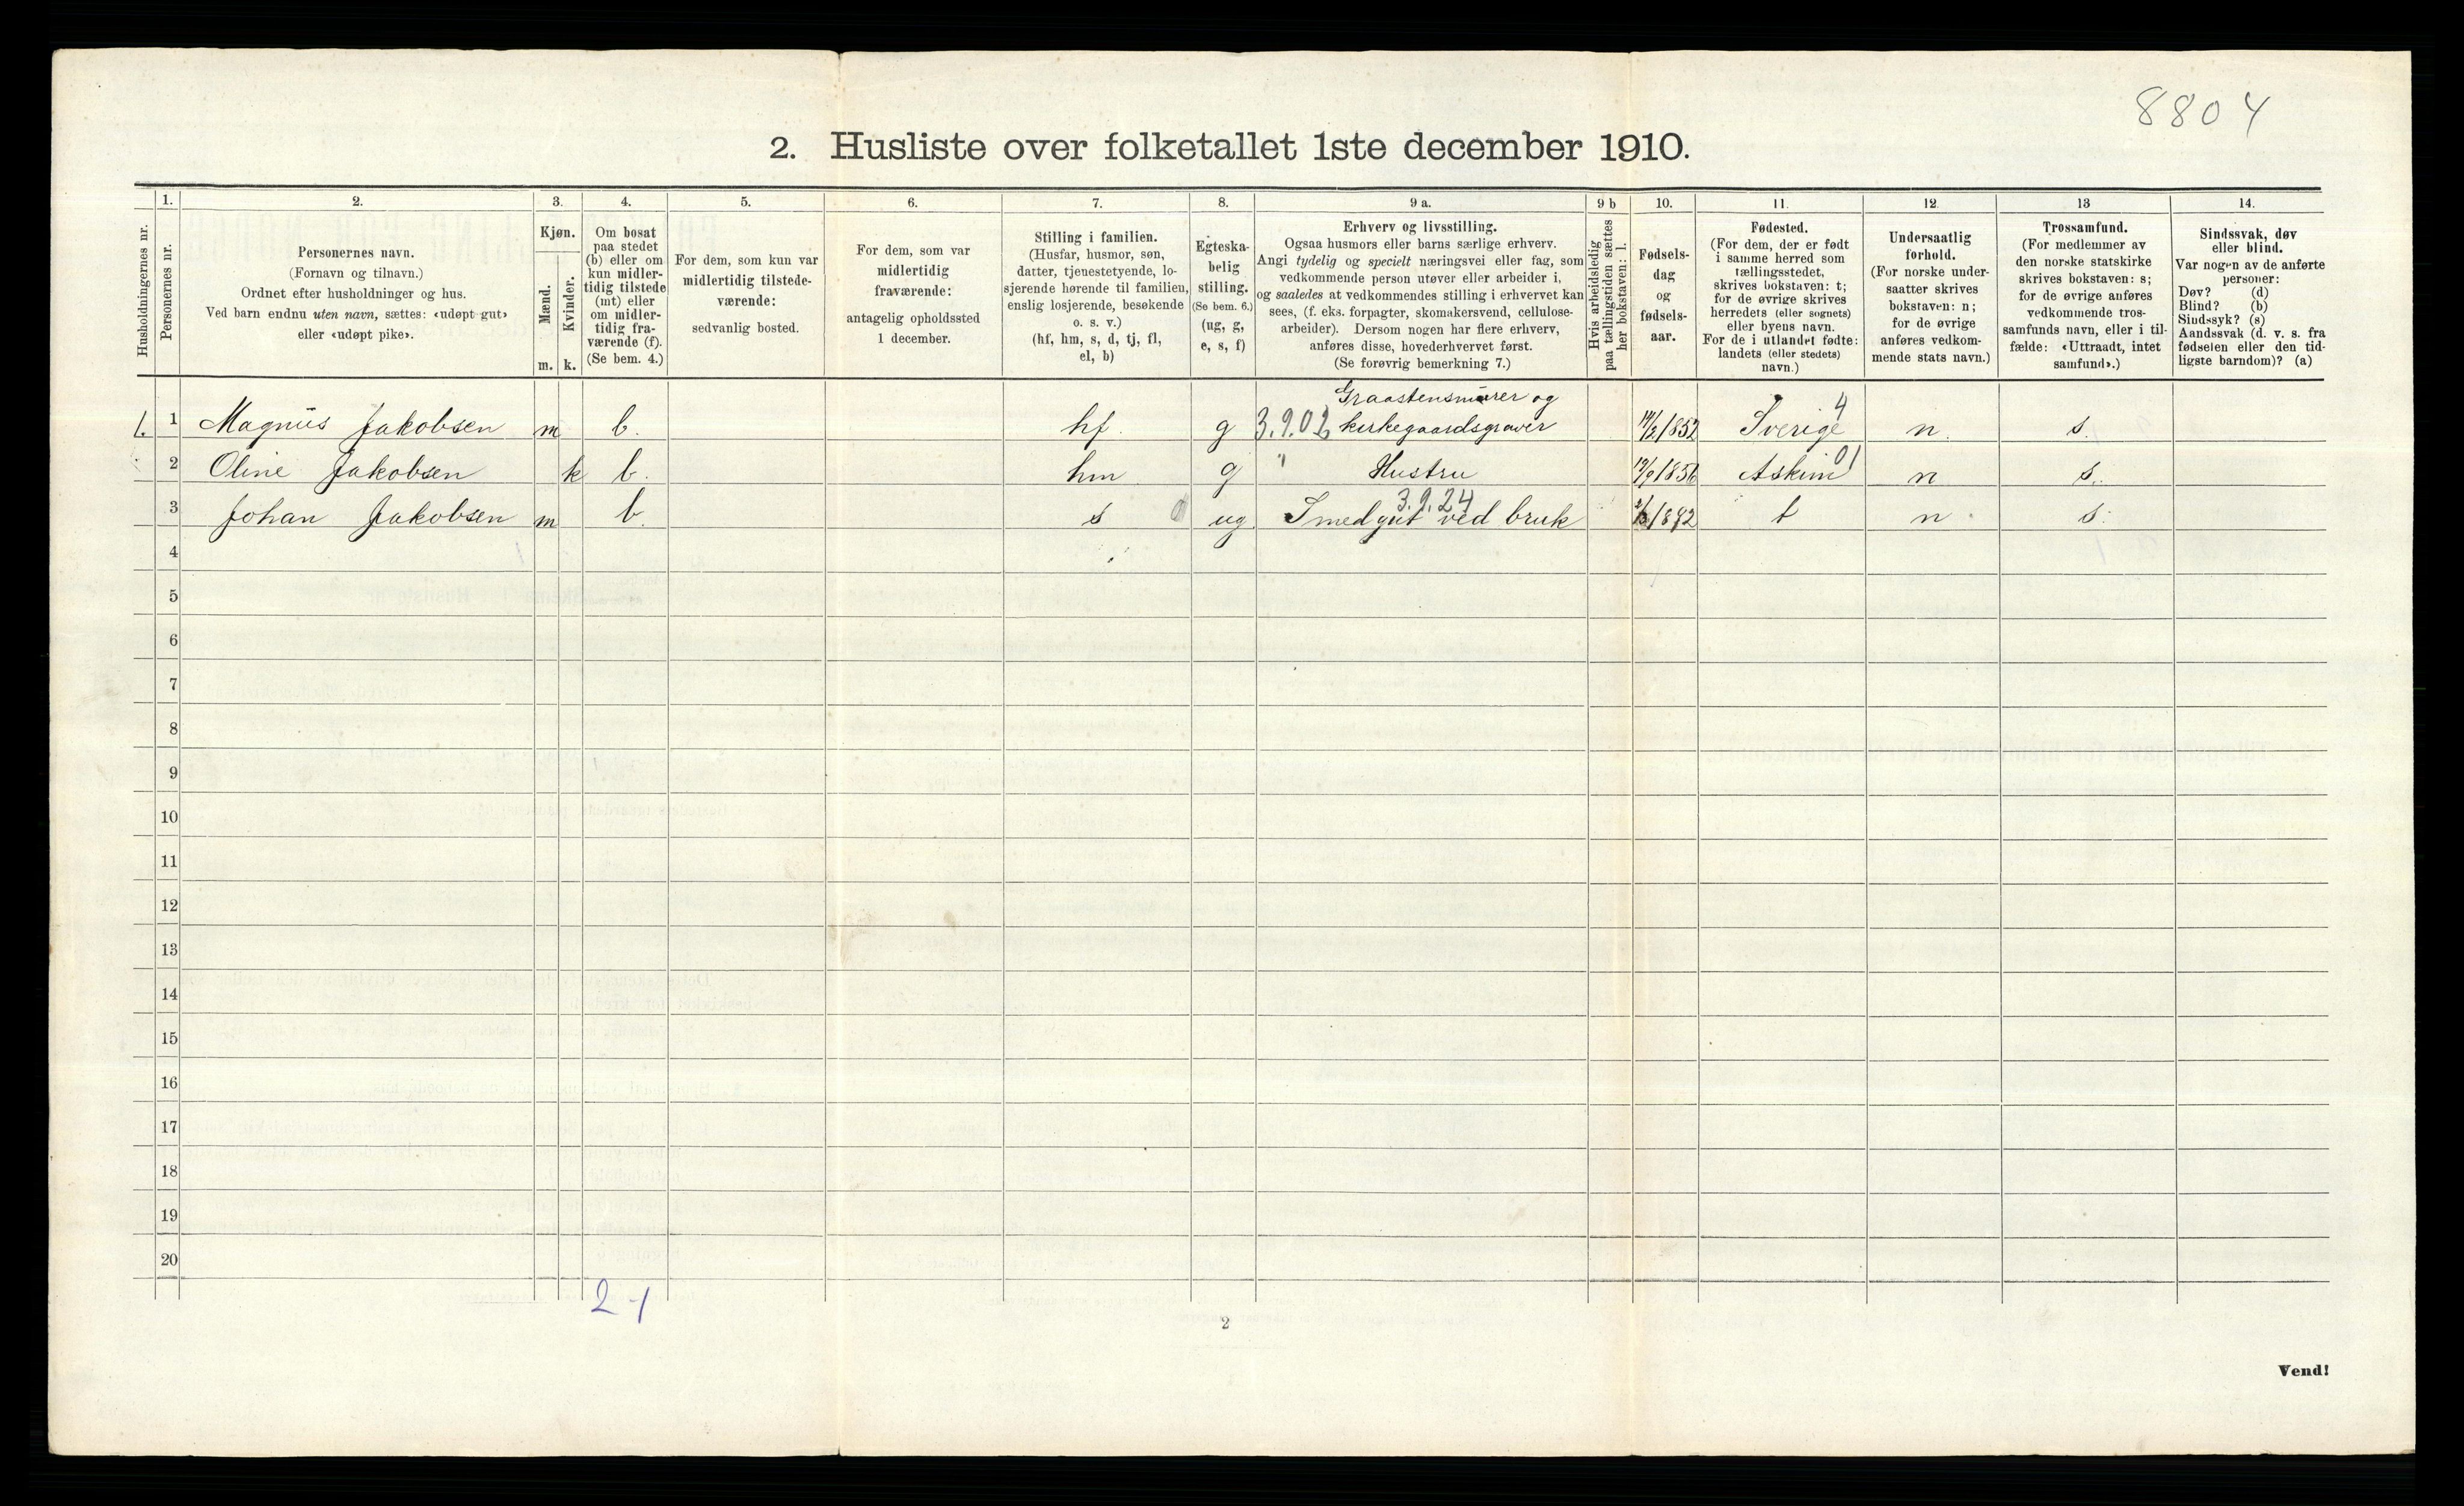 8804
2. Husliste over folketallet 1ste december 1910.
Husholdningernes nr.
1.
Personernes nr.
2.
Personernes navn.
(Fornavn og tilnavn.)
Ordnet efter husholdninger og hus.
Ved barn endnu uten navn, sættes: «udøpt gut»
eller «udøpt pike».
3.
Kjøn.
Mænd.
Kvinder.
m.
k.
4.
Om bosat
paa stedet
(b) eller om
kun midler-
tidig tilstede
(mt) eller
om midler-
tidig fra-
værende (f).
(Se bem. 4.)
5.
For dem, som kun var
midlertidig tilstede-
værende:
sedvanlig bosted.
6.
For dem, som var
midlertidig
fraværende:
antagelig opholdssted
1 december.
7.
Stilling i familien.
(Husfar, husmor, søn,
datter, tjenestetyende, lo-
sjerende hørende til familien,
enslig losjerende, besøkende
o. s. v.)
(hf, hm, s, d, tj, fl,
el, b)
8.
Egteska-
belig
stilling.
(Se bem. 6.)
(ug, g,
e, s, f)
9 a.
Erhverv og livsstilling.
Ogsaa husmors eller barns særlige erhverv.
Angi tydelig og specielt næringsvei eller fag, som
vedkommende person utøver eller arbeider i,
og saaledes at vedkommendes stilling i erhvervet kan
sees, (f. eks. forpagter, skomakersvend, cellulose-
arbeider). Dersom nogen har flere erhverv,
anføres disse, hovederhvervet først.
(Se forøvrig bemerkning 7.)
9 b
Hvis arbeidsledig
paa tællingstiden sættes
her bokstaven: l.
10.
Fødsels-
dag
og
fødsels-
aar.
11.
Fødested.
(For dem, der er født
i samme herred som
tællingsstedet,
skrives bokstaven: t;
for de øvrige skrives
herredets (eller sognets)
eller byens navn.
For de i utlandet fødte:
landets (eller stedets)
navn.)
12.
Undersaatlig
forhold.
(For norske under-
saatter skrives
bokstaven: n;
for de øvrige
anføres vedkom-
mende stats navn.)
13
Trossamfund.
(For medlemmer av
den norske statskirke
skrives bokstaven: s;
for de øvrige anføres
vedkommende tros-
samfunds navn, eller i til-
fælde: «Uttraadt, intet
samfund».)
14.
Sindssvak, døv
eller blind.
Var nogen av de anførte
personer:
Døv? (d)
Blind? (b)
Sindssyk? (s)
Aandssvak (d. v. s. fra
fødselen eller den tid-
ligste barndom)? (a)
Graastensmurer og 4
1. 1 Magnus Jakobsen m b. hf. g 3.9.02 kirkegaardsgraver 14/2 1852 Sverige n. s.
2 Oline Jakobsen k b. hm g " Hustru 19/9 1856 Askim 01 n s.
3.9.24
3 Johan Jakobsen m b. s 0 ug Smedgut ved bruk 1892 t n. s.
4
5
6
7
8
9
10
11
12
13
14
15
16
17
18
19
20
2-1
2
Vend!